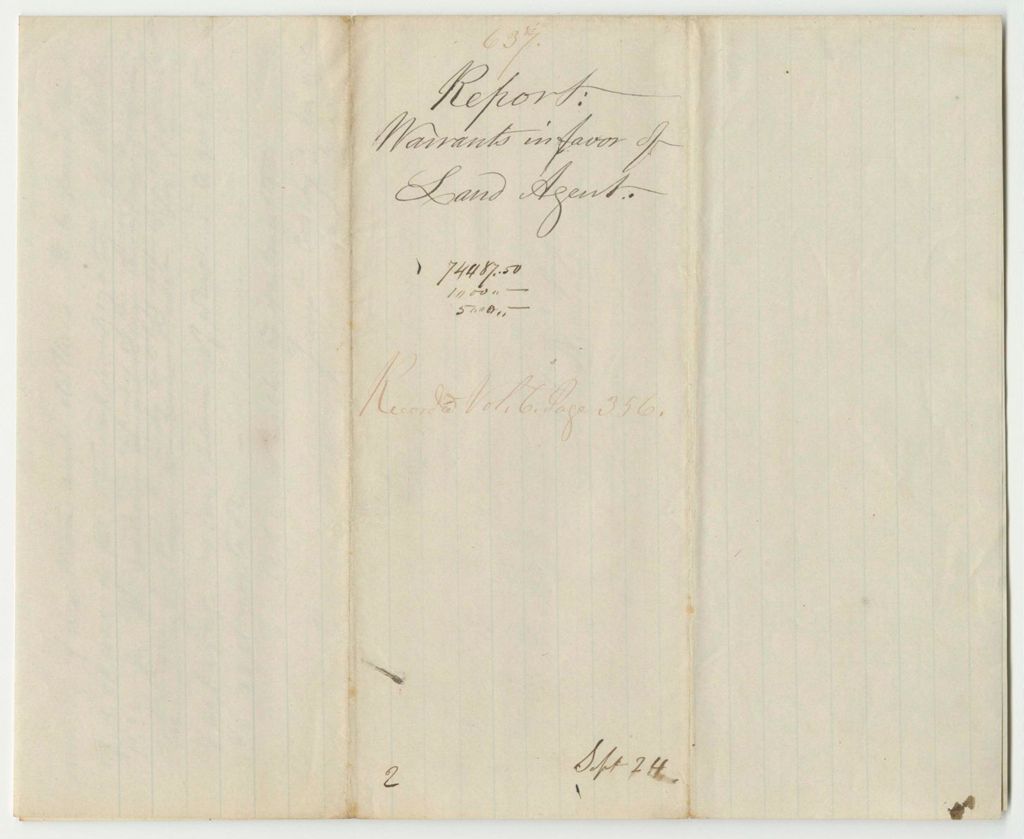 637.
Report:
Warrants in favor of
Land Agent.
74487.50
1000..—
5000..—
Recorded Vol. 6. Page 356.
2
Sept 24